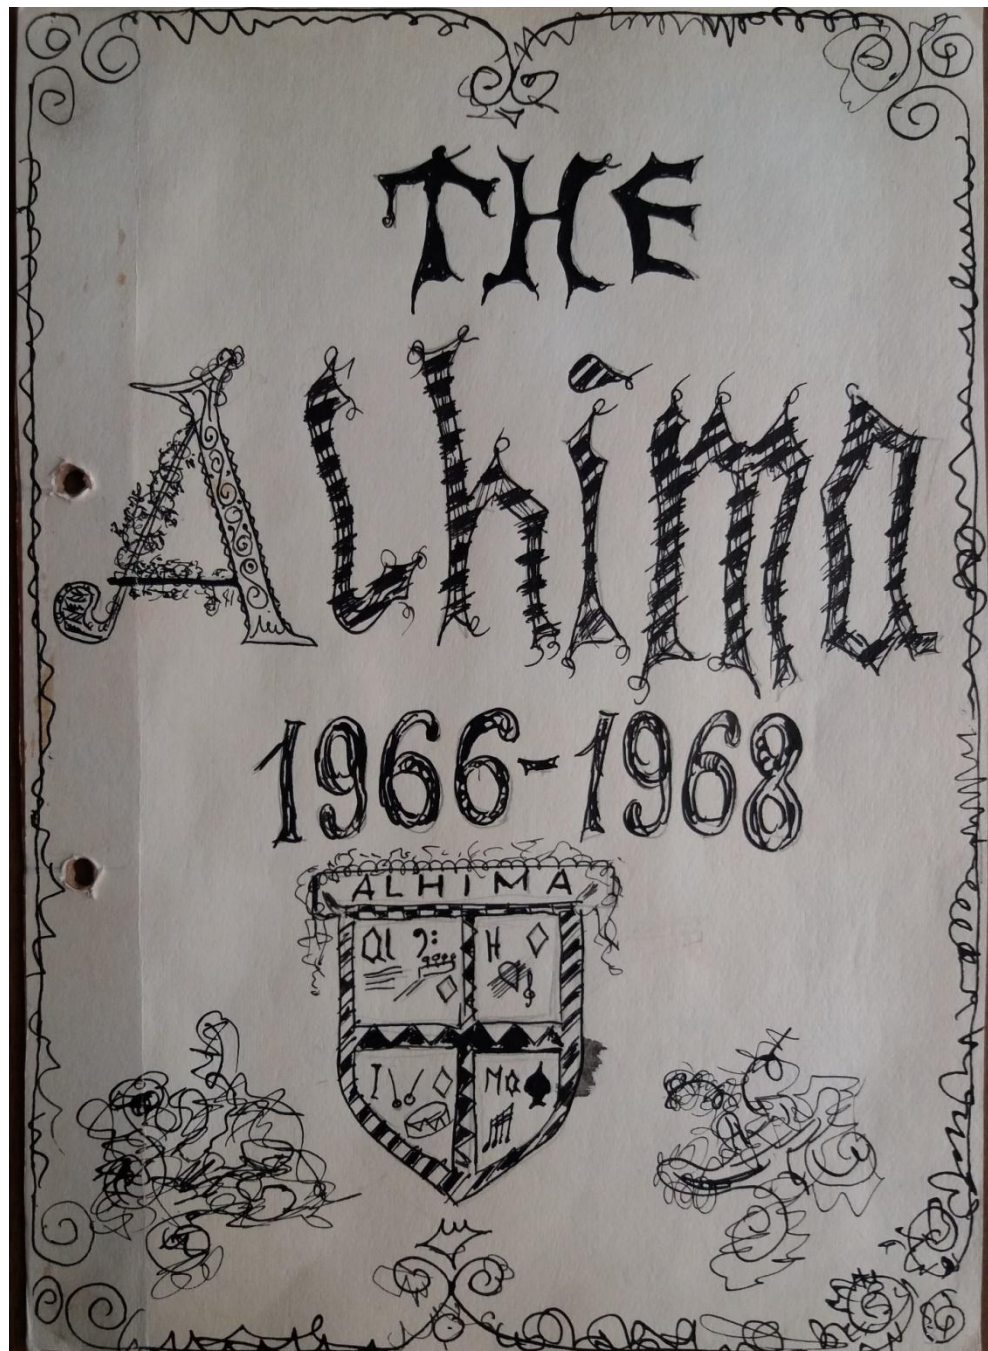 THE
Alhima
1966-1968
ALHIMA
Al H
I Ma